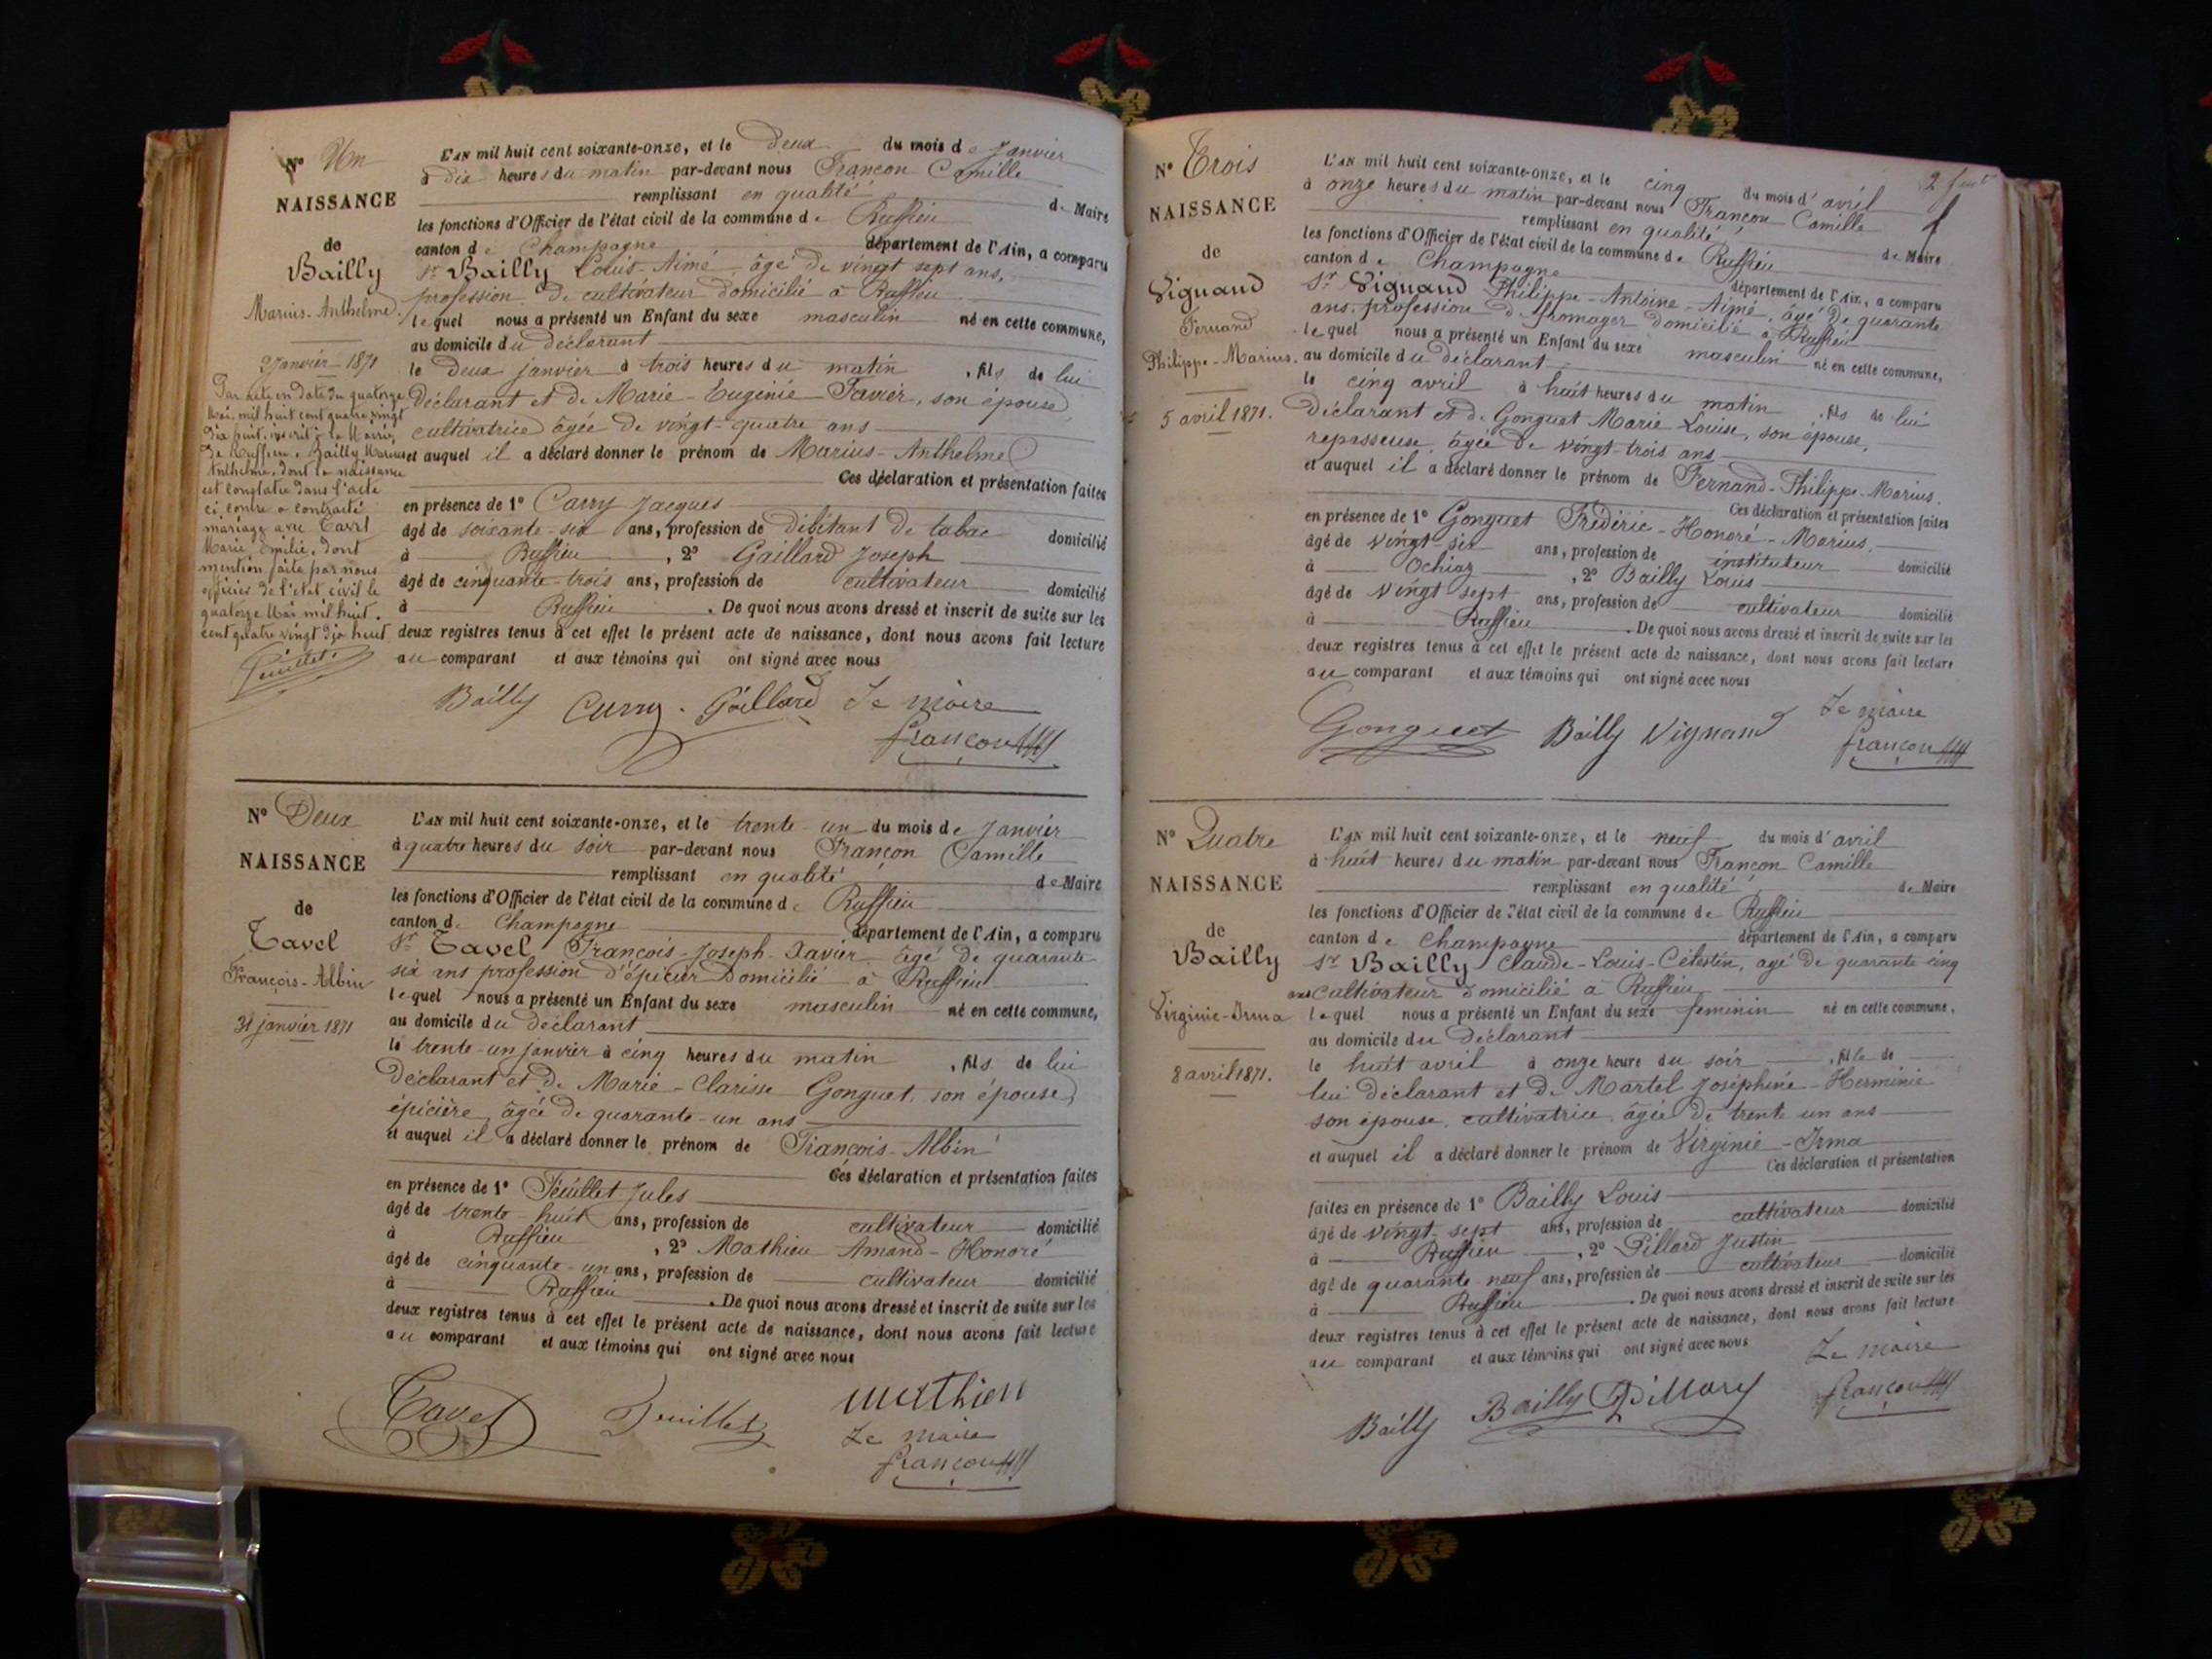 No Un
NAISSANCE
de
Bailly
Marius-Anthelme
2 Janvier 1871
Par acte en date du quatorze
Mai mil huit cent quatre vingt
dix huit, inscrit à la Mairie
de Ruffieu, Bailly Marius
Anthelme, dont la naissance
est constatée dans l'acte
ci contre a contracté
mariage avec Tavel
Marie Emilie, dont
mention faite par nous
officier de l'état civil le
quatorze Mai mil huit
cent quatre vingt dix huit.
L'AN mil huit cent soixante-onze, et le deux du mois de Janvier
à dix heures du matin par-devant nous Françon Camille
remplissant en qualité de Maire
les fonctions d'Officier de l'état civil de la commune de Ruffieu
canton de Champagne département de l'Ain, a comparu
Sr Bailly Louis-Aimé, âgé de vingt sept ans,
profession de cultivateur domicilié à Ruffieu
lequel nous a présenté un Enfant du sexe masculin né en cette commune,
au domicile du déclarant
le deux janvier à trois heures du matin, fils de lui
déclarant et de Marie-Eugénie Favier, son épouse,
cultivatrice âgée de vingt-quatre ans
et auquel il a déclaré donner le prénom de Marius-Anthelme
Ces déclaration et présentation faites
en présence de 1o Carry Jacques
âgé de soixante-six ans, profession de débitant de tabac domicilié
à Ruffieu, 2o Gaillard Joseph
âgé de cinquante-trois ans, profession de cultivateur domicilié
à Ruffieu. De quoi nous avons dressé et inscrit de suite sur les
deux registres tenus à cet effet le présent acte de naissance, dont nous avons fait lecture
au comparant et aux témoins qui ont signé avec nous
Bailly Curry Gaillard Le maire
françon
No Deux
NAISSANCE
de
Tavel
François-Albin
31 janvier 1871
L'AN mil huit cent soixante-onze, et le trente-un du mois de Janvier
à quatre heures du soir par-devant nous Françon Camille
remplissant en qualité de Maire
les fonctions d'Officier de l'état civil de la commune de Ruffieu
canton de Champagne département de l'Ain, a comparu
Sr Tavel François-Joseph-Xavier âgé de quarante
six ans profession d'épicier domicilié à Ruffieu
lequel nous a présenté un Enfant du sexe masculin né en cette commune,
au domicile du déclarant
le trente-un janvier à cinq heures du matin, fils de lui
déclarant et de Marie-Clarisse Gonguet, son épouse,
épicière, âgée de quarante-un ans
et auquel il a déclaré donner le prénom de François-Albin
Ces déclaration et présentation faites
en présence de 1o Feuillet Jules
âgé de trente-huit ans, profession de cultivateur domicilié
à Ruffieu, 2o Mathieu Amand-Honoré
âgé de cinquante-un ans, profession de cultivateur domicilié
à Ruffieu. De quoi nous avons dressé et inscrit de suite sur les
deux registres tenus à cet effet le présent acte de naissance, dont nous avons fait lecture
au comparant et aux témoins qui ont signé avec nous
Tavel Feuillet Mathieu
Le maire
françon
No Trois
NAISSANCE
de
Vignand
Fernand
Philippe-Marius.
5 avril 1871.
L'AN mil huit cent soixante-onze, et le cinq du mois d'avril
à onze heures du matin par-devant nous Françon Camille
remplissant en qualité de Maire
les fonctions d'Officier de l'état civil de la commune de Ruffieu
canton de Champagne département de l'Ain, a comparu
Sr Vignand Philippe-Antoine-Aimé, âgé de quarante
ans, profession de fromager domicilié à Ruffieu
lequel nous a présenté un Enfant du sexe masculin né en cette commune,
au domicile du déclarant
le cinq avril à huit heures du matin, fils de lui
déclarant et de Gonguet Marie-Louise, son épouse,
repasseuse, âgée de vingt-trois ans
et auquel il a déclaré donner le prénom de Fernand-Philippe-Marius.
Ces déclaration et présentation faites
en présence de 1o Gonguet Frédéric-Honoré-Marius,
âgé de vingt-six ans, profession de instituteur domicilié
à Ochiaz, 2o Bailly Louis
âgé de vingt sept ans, profession de cultivateur domicilié
à Ruffieu. De quoi nous avons dressé et inscrit de suite sur les
deux registres tenus à cet effet le présent acte de naissance, dont nous avons fait lecture
au comparant et aux témoins qui ont signé avec nous
Gonguet Bailly Vignand Le maire
françon
No Quatre
NAISSANCE
de
Bailly
Virginie-Irma
8 avril 1871.
L'AN mil huit cent soixante-onze, et le neuf du mois d'avril
à huit heures du matin par-devant nous Françon Camille
remplissant en qualité de Maire
les fonctions d'Officier de l'état civil de la commune de Ruffieu
canton de Champagne département de l'Ain, a comparu
Sr Bailly Claude-Louis-Célestin, agé de quarante cinq
ans cultivateur domicilié à Ruffieu
lequel nous a présenté un Enfant du sexe feminin né en cette commune,
au domicile du déclarant
le huit avril à onze heure du soir, fille de
lui déclarant et de Martel Joséphine-Herminie
son épouse, cultivatrice, âgée de trente un ans
et auquel il a déclaré donner le prénom de Virginie-Irma
Ces déclaration et présentation
faites en présence de 1o Bailly Louis
âgé de vingt-sept ans, profession de cultivateur domicilié
à Ruffieu, 2o Pillard Justin
âgé de quarante-neuf ans, profession de cultivateur domicilié
à Ruffieu. De quoi nous avons dressé et inscrit de suite sur les
deux registres tenus à cet effet le présent acte de naissance, dont nous avons fait lecture
au comparant et aux témoins qui ont signé avec nous
Le maire
Bailly Bailly Pillard françon